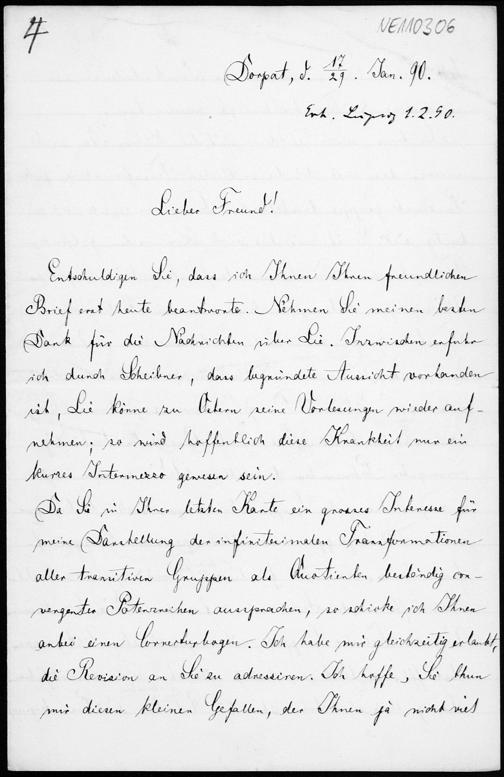 4
NE110306
Dorpat, d. 17/29. Jan. 90.
Erh. Leipzig 1.2.90.
Lieber Freund!
Entschuldigen Sie, dass ich Ihnen Ihren freundlichen
Brief erst heute beantworte. Nehmen Sie meinen besten
Dank für die Nachrichten über Lie. Inzwischen erfuhr
ich durch Scheibner, dass begründete Aussicht vorhanden
ist, Lie könne zu Ostern seine Vorlesungen wieder auf-
nehmen; so wird hoffentlich diese Krankheit nur ein
kurzes Intermezzo gewesen sein.
Da Sie in Ihrer letzten Karte ein grosses Interesse für
meine Darstellung der infinitesimalen Transformationen
aller transitiven Gruppen als Quotienten beständig con-
vergenter Potenzreihen aussprachen, so schicke ich Ihnen
anbei einen Correcturbogen. Ich habe mir gleichzeitig erlaubt,
die Revision an Sie zu adressiren. Ich hoffe, Sie thun
mir diesen kleinen Gefallen, der Ihnen ja nicht viel